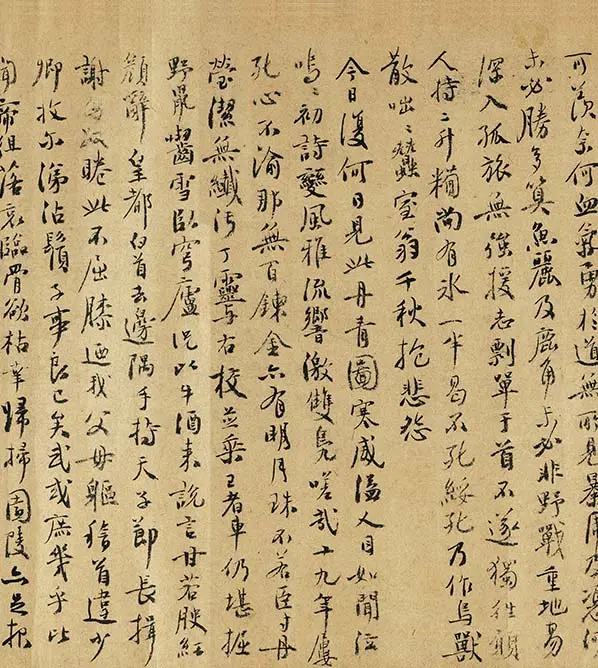 可羨奈何血氣勇於道無所見暴虎及憑河
未必勝多算魚麗及鹿角未必非野戰重地易
深入孤旅無強援志剽單于首不遂獨往願
人持二升糒尚有冰一半曷不死綏死乃作鳥獸
散咄咄蠶室翁千秋抱悲惋
今日復何日見此丹青圖寒威溢人目如聞泣
嗚嗚初詩變風雅流響激雙鳧嗟哉十九年屢
死心不渝那無百鍊金亦有明月珠不若臣寸丹
瑩潔無纖汙丁靈與右校並乘王者車仍堪掘
野鼠嚙雪臥穹廬況此牛酒來說言甘若腴紅
顏辭皇都白首去邊隅手持天子節長揖
謝匈奴睠此不屈膝迺我父母軀稽首違少
卿投尔涕沾鬚子事良已矣武或庶幾乎比
聞帝徂落哀臨骨欲枯幸歸掃園陵亦足報